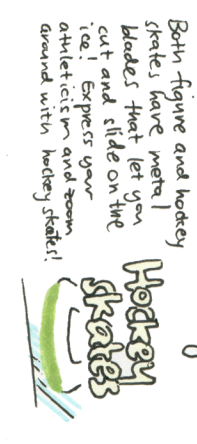 Both figure and hockey
skates have metal
blades that let you
cut and slide on the
ice! Express your
athleticism and zoom
around with hockey skates!
Hockey
skates